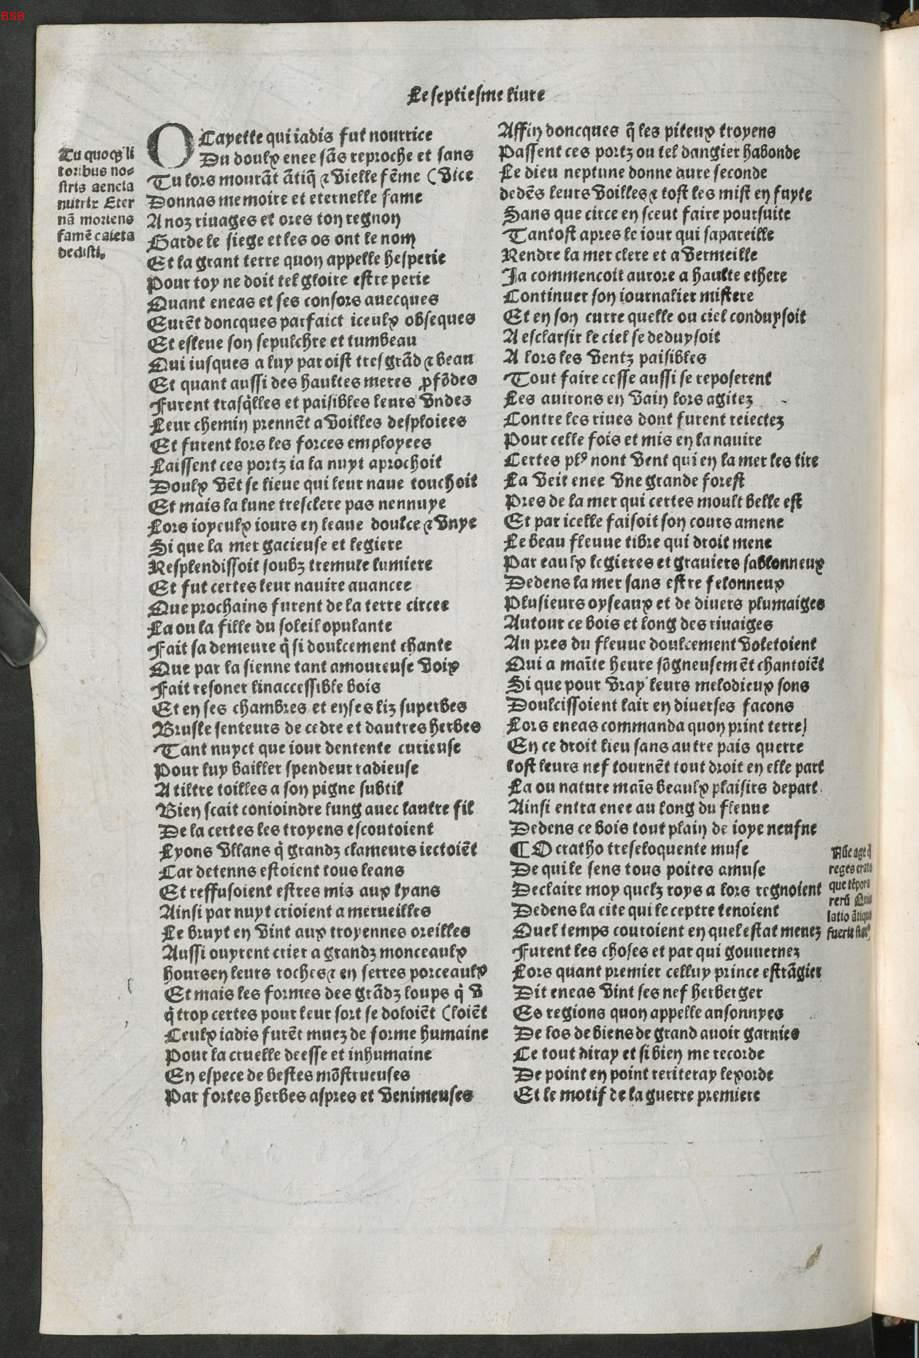 BSB
Le septiesme liure
Tu quoqȝ li
toribus no-
stris aeneia
nutrix Eter
nā moriens
famē caieta
dedisti.
O Cayette qui iadis fut nourrice
Du doulx enee sās reproche et sans
Tu lors mourāt ātiq̄ ⁊ vielle fēme (vice
Donnas memoire et eternelle fame
A noz riuages et ores ton regnon
Garde le siege et les os ont le nom
Et la grant terre quon appelle hesperie
Pour toy ne doit tel gloire estre perie
Quant eneas et ses consors auecques
Eurēt doncques parfaict iceulx obseques
Et esleue son sepulchre et tumbeau
Qui iusques a luy paroist tres grād ⁊ beau
Et quant aussi des haultes meres ꝓfōdes
Furent trāsq̄lles et paisibles leurs vndes
Leur chemin prennēt a voilles desploiees
Et furent lors les forces employees
Laissent ces portz ia la nuyt aprochoit
Doulx vēt se lieue qui leur naue touchoit
Et mais la lune tresclere pas nennuye
Lors ioyeulx iours en leaue doulce ⁊ vnye
Si que la mer gacieuse et legiere
Resplendissoit soubz tremule lumiere
Et fut certes leur nauire auancee
Que prochains furent de la terre circee
La ou la fille du soleil opulante
Fait sa demeure q̄ si doulcement chante
Que par la sienne tant amoureuse voix
Fait resoner linaccessible bois
Et en ses chambres et en ses liz superbes
Brusle senteurs de cedre et dautres herbes
Tant nuyct que iour dentente curieuse
Pour luy bailler spendeur radieuse
A tiltre toilles a son pigne subtil
Bien scait conioindre lung auec lautre fil
De la certes les troyens escoutoient
Lyons vllans q̄ grandz clameurs iectoiēt
Car detenns estoient tous leans
Et reffusoient estres mis aux lyans
Ainsi par nuyt crioient a merueilles
Le bruyt en vint aux troyennes oreilles
Aussi ouyrent crier a grandz monceaulx
hours en leurs roches ⁊ en serres porceaulx
Et mais les formes des grādz loups q̄ v
q̄ trop certes pour leur sort se doloiēt (loiēt
Ceulx iadis furēt muez de forme humaine
Pour la cruelle deesse et inhumaine
En espece de bestes mōstrueuses
Par fortes herbes aspres et venimeuses
Affin doncques q̄ les piteux troyens
Passent ces portz ou tel dangier habonde
Le dieu neptune donne aure seconde
dedēs leurs voilles ⁊ tost les mist en fuyte
Sans que circe en sceut faire poursuite
Tantost apres le iour qui sapareille
Rendre la mer clere et a vermeille
Ja commencoit aurore a haulte ethere
Continuer son iournalier mistere
Et en son curre quelle ou ciel conduysoit
A esclarsir le ciel se deduysoit
A lors les ventz paisibles
Tout faire cesse aussi se reposerent
Les auirons en vain lors agitez
Contre les riues dont furent reiectez
Pour celle fois et mis en la nauire
Certes plꝰ nont vent qui en la mer les tire
La veit enee vne grande forest
Pres de la mer qui certes moult belle est
Et par icelle faisoit son cours amene
Le beau fleuue tibre qui droit mene
Par eaulx legieres et grauiers sablonneux
Dedens la mer sans estre felonneux
Plusieurs oyseaux et de diuers plumaiges
Autour ce bois et long des riuaiges
Au pres du fleuue doulcement voletoient
Qui a maīte heure sōgneusemēt chantoiēt
Si que pour vray leurs melodieux sons
Doulcissoient lair en diuerses facons
Lors eneas commanda quon print terre
En ce droit lieu sans autre pais querre
tost leurs nef tournēt tout droit en elle part
La ou nature maīs beaulx plaisirs depart
Ainsi entra enee au long du fleuue
Dedens ce bois tout plain de ioye neufue
¶ O cratho treseloquente muse
De qui le sens tous poites amuse
Declaire moy quelz roys a lors regnoient
Dedens la cite qui le ceptre tenoient
Quel temps couroient en quel estat menez
Furent les choses et par qui gouuernez
Lors quant premier celluy prince estrāgier
Dit eneas vint ses nef herberger
Es regions quon appelle ansonnyes
De los de biens de grand auoir garnies
Ce tout diray et si bien me recorde
De point en point reriteray lexorde
Et le motif de la guerre premiere
Nūc age q̄
reges erato
que tēpora
rerū
latio ātiquo
fuerit